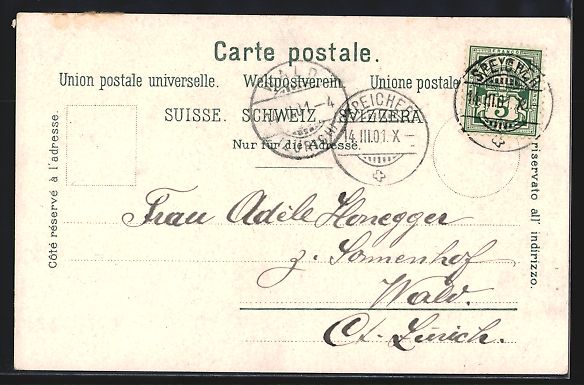 Carte postale.
Union postale universelle. Weltpostverein. Unione postale
SUISSE. SCHWEIZ. SVIZZERA
Nur für die Adresse.
Côté réservé à l'adresse.
riservato all' indirizzo.
FRANCO
5
SPEICHER
14.III.01.X
SPEICHER
14.III.01.X
WALD
Frau Adèle Honegger
z. Sonnenhof
Wald.
Ct. Zürich.